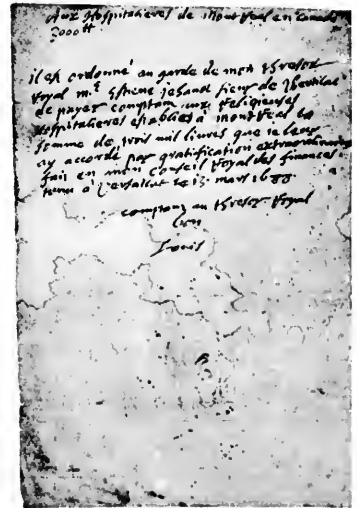 Aux hospitalieres de montreal en canada
3000 ₶
il est ordonné au garde de mon thresor
royal m.e Estiene Jehanot sieur de
de payer comptant aux religieuses
hospitalieres establies a montreal la
somme de trois mil livres que je leur
ay accordé par gratification extraordinaire
fait en mon conseil royal des finances
tenu a versailles le 15 mars 1688
comptant au thresor royal
bon
Louis